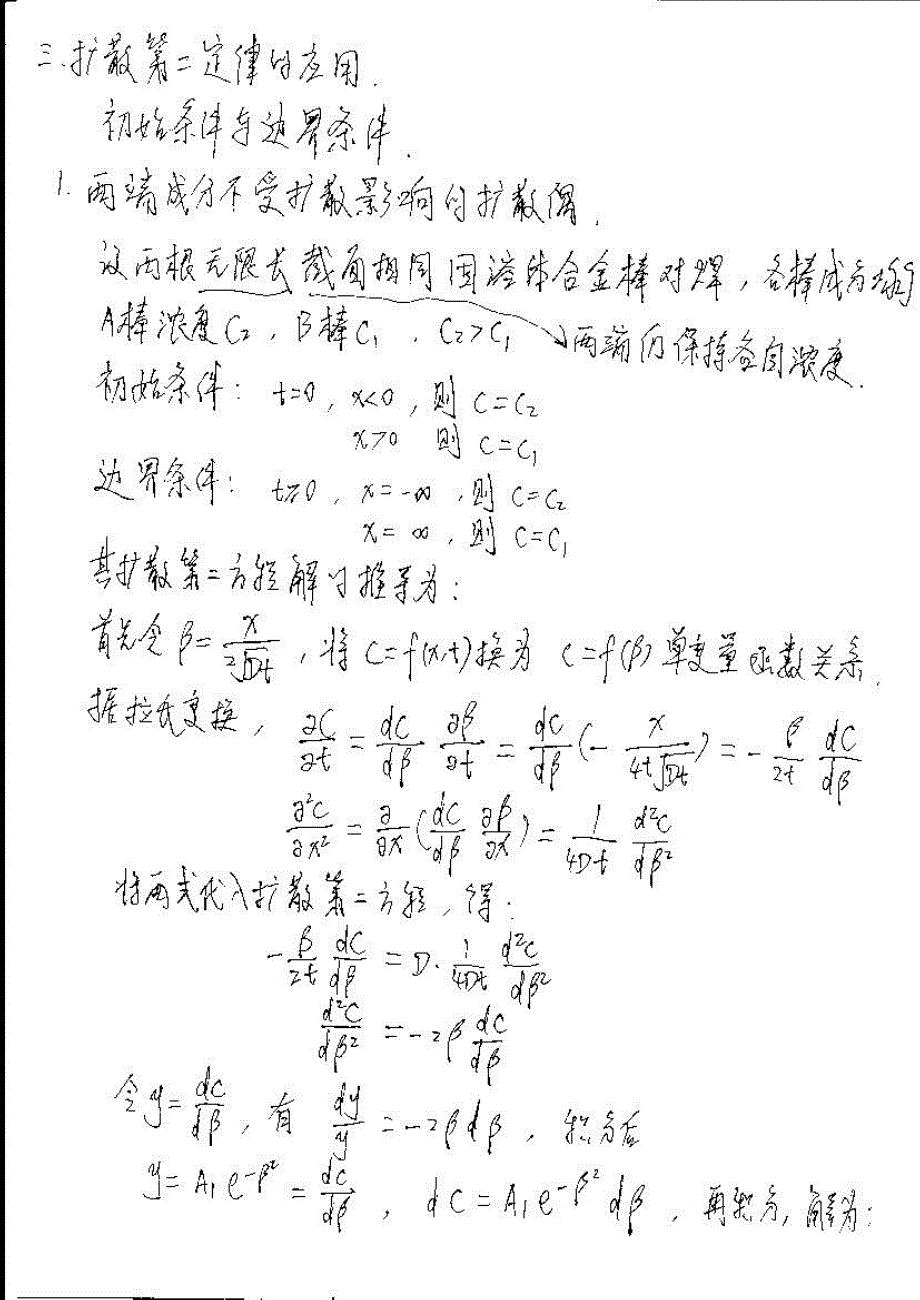 三.扩散第二定律的应用.
初始条件与边界条件.
1. 两端成分不受扩散影响的扩散偶.
设两根无限长截面相同固溶体合金棒对焊，各棒成分均匀
A棒浓度C₂，B棒C₁，C₂>C₁ 两端仍保持各自浓度.
初始条件：t=0，x<0，则 C=C₂
x>0 则 C=C₁
边界条件：t≥0，x=-∞，则 C=C₂
x=∞，则 C=C₁
其扩散第二方程解的推导为：
首先令 β=x/(2√Dt)，将 C=f(x,t)换为 C=f(β) 单变量函数关系.
据拉氏变换，∂C/∂t = dC/dβ ∂β/∂t = dC/dβ(- x/(4t√Dt)) = - β/2t dC/dβ
∂²C/∂x² = ∂/∂x(dC/dβ ∂β/∂x) = 1/4Dt d²C/dβ²
将两式代入扩散第二方程，得：
- β/2t dC/dβ = D· 1/4Dt d²C/dβ²
d²C/dβ² = -2β dC/dβ
令 y= dC/dβ，有 dy/y = -2βdβ，积分后
y = A₁e^(-β²) = dC/dβ，dC = A₁e^(-β²) dβ，再积分，解为：